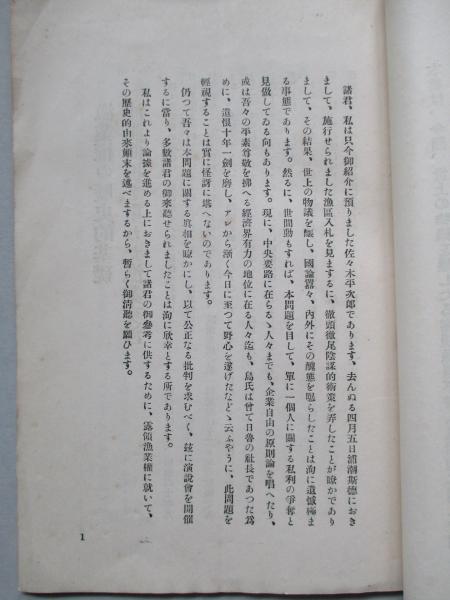 諸君、私は只今御紹介に預りました佐々木平次郎であります。去んぬる四月五日浦潮斯德におき
まして、施行せられました漁區入札を見まするに、徹頭徹尾陰謀的術策を弄したことが瞭かであり
まして、その結果、世上の物議を釀し、國論囂々、內外にその醜態を曝らしたことは洵に遺憾極ま
る事態であります。然るに、世間動もすれば、本問題を目して、單に一個人に關する私利の爭奪と
見做してゐる向もあります。現に、中央要路に在らるゝ人々までも、企業自由の原則論を唱へたり、
或は吾々の平素尊敬を拂へる經濟界有力の地位に在る人々迄も、島氏は曾て日魯の社長であつた爲
めに、遺恨十年一劍を磨し、アレから漸く今日に至つて野心を遂げたなどゝ云ふやうに、此問題を
輕視することは實に怪訝に堪へないのであります。
仍つて吾々は本問題に關する眞相を瞭かにし、以て公正なる批判を求むべく、玆に演說會を開催
するに當り、多數諸君の御來聽せられましたことは洵に欣幸とする所であります。
私はこれより論據を進める上におきまして諸君の御參考に供するために、露領漁業權に就いて、
その歷史的由來顚末を述べまするから、暫らく御淸聽を願ひます。
1